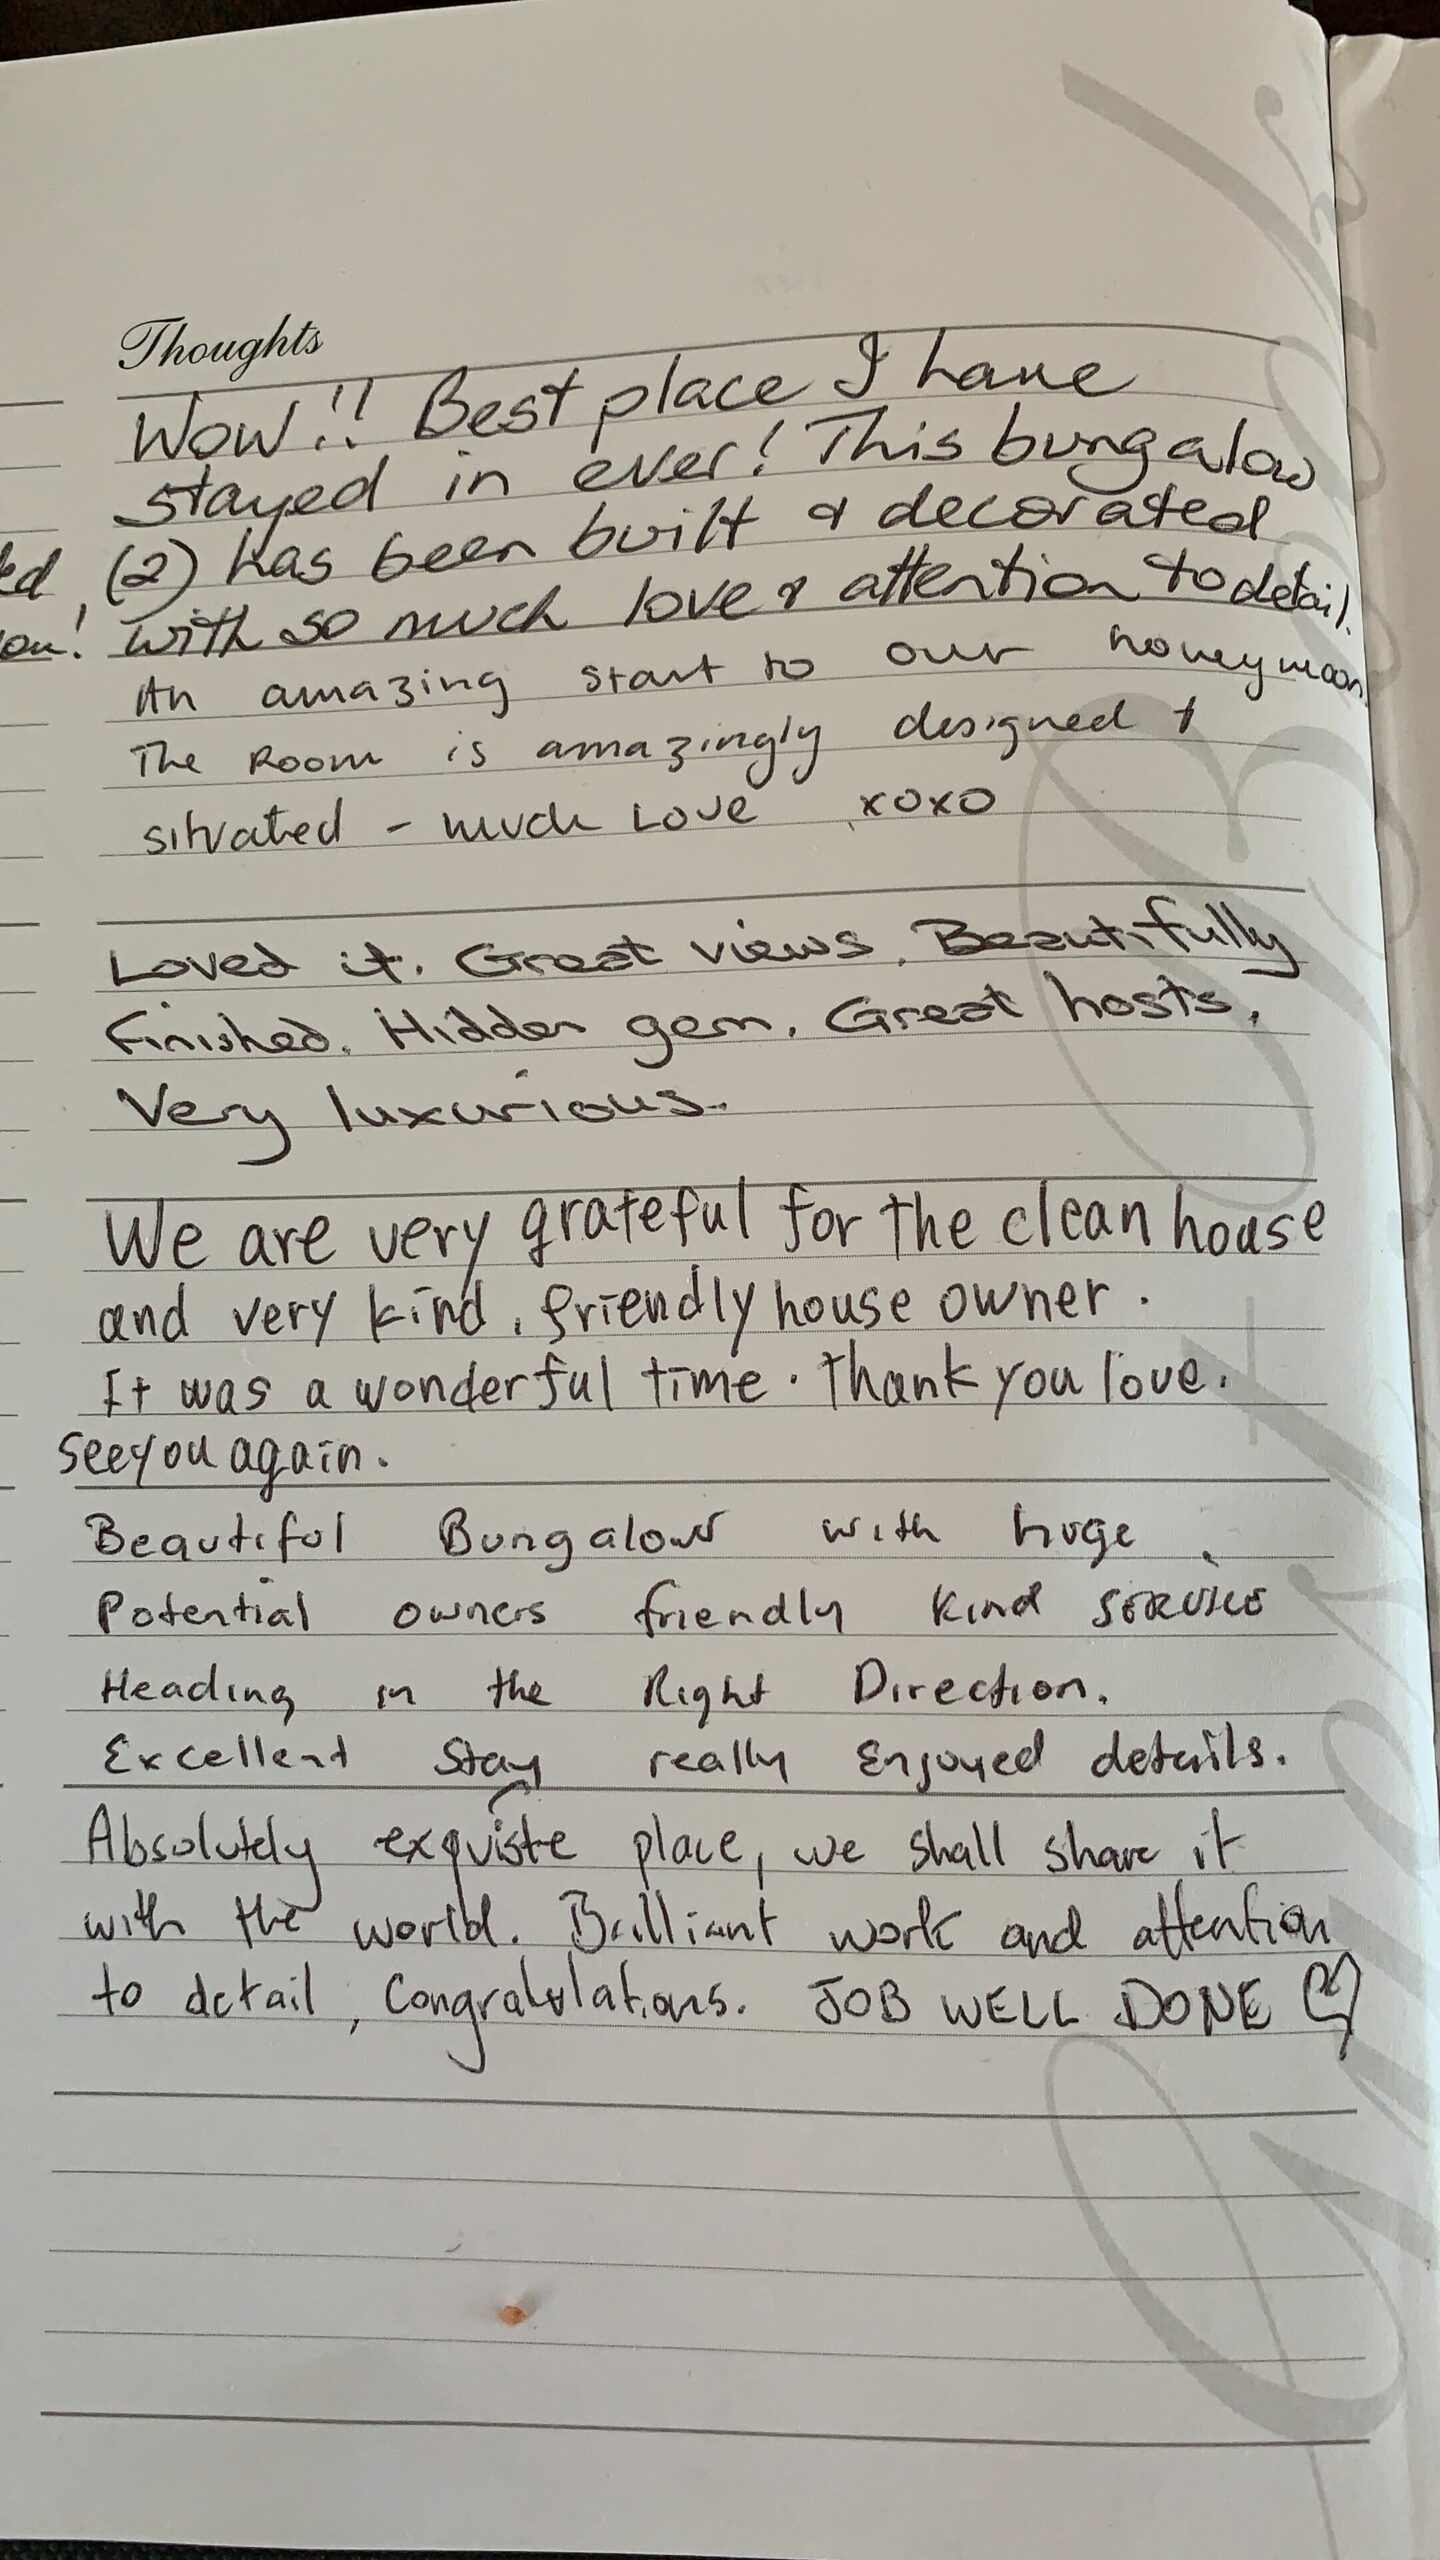 Thoughts
Wow!! Best place I have
stayed in ever! This bungalow
(2) has been built & decorated
with so much love & attention to detail.
An amazing start to our honeymoon.
The Room is amazingly designed +
situated - much Love xoxo
Loved it. Great views. Beautifully
Finished. Hidden gem. Great hosts.
Very luxurious.
We are very grateful for the clean house
and very kind, friendly house owner.
It was a wonderful time. Thank you love.
see you again.
Beautiful Bungalow with huge
Potential owners friendly kind service
Heading in the Right Direction.
Excellent stay really Enjoyed details.
Absolutely exquiste place, we shall share it
with the world. Brilliant work and attention
to detail, Congratulations. JOB WELL DONE
Guest Book